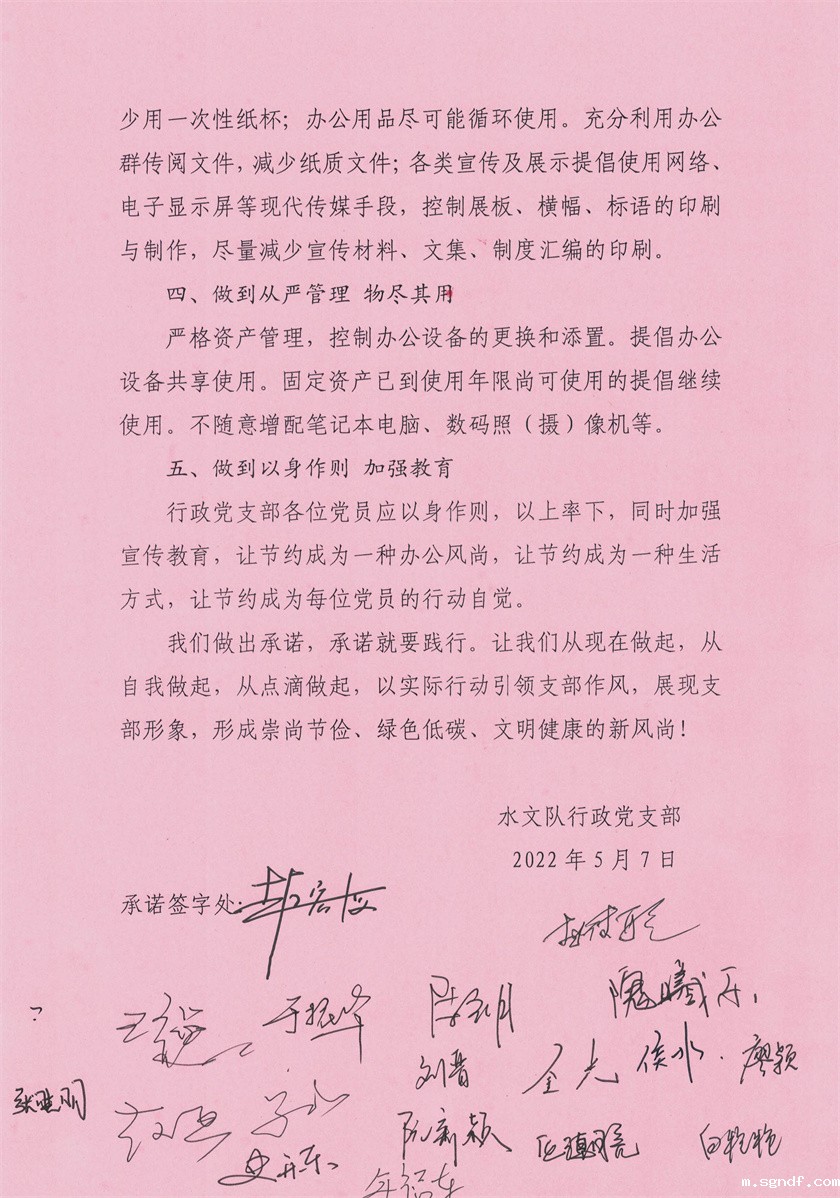 少用一次性纸杯；办公用品尽可能循环使用。充分利用办公
群传阅文件，减少纸质文件；各类宣传及展示提倡使用网络、
电子显示屏等现代传媒手段，控制展板、横幅、标语的印刷
与制作，尽量减少宣传材料、文集、制度汇编的印刷。
四、做到从严管理 物尽其用
严格资产管理，控制办公设备的更换和添置。提倡办公
设备共享使用。固定资产已到使用年限尚可使用的提倡继续
使用。不随意增配笔记本电脑、数码照（摄）像机等。
五、做到以身作则 加强教育
行政党支部各位党员应以身作则，以上率下，同时加强
宣传教育，让节约成为一种办公风尚，让节约成为一种生活
方式，让节约成为每位党员的行动自觉。
我们做出承诺，承诺就要践行。让我们从现在做起，从
自我做起，从点滴做起，以实际行动引领支部作风，展现支
部形象，形成崇尚节俭、绿色低碳、文明健康的新风尚！
水文队行政党支部
2022 年 5 月 7 日
承诺签字处：
于振峰
刘晋
金光
侯冰
廖颖
阮新颖
白艳艳
m.sgndf.com